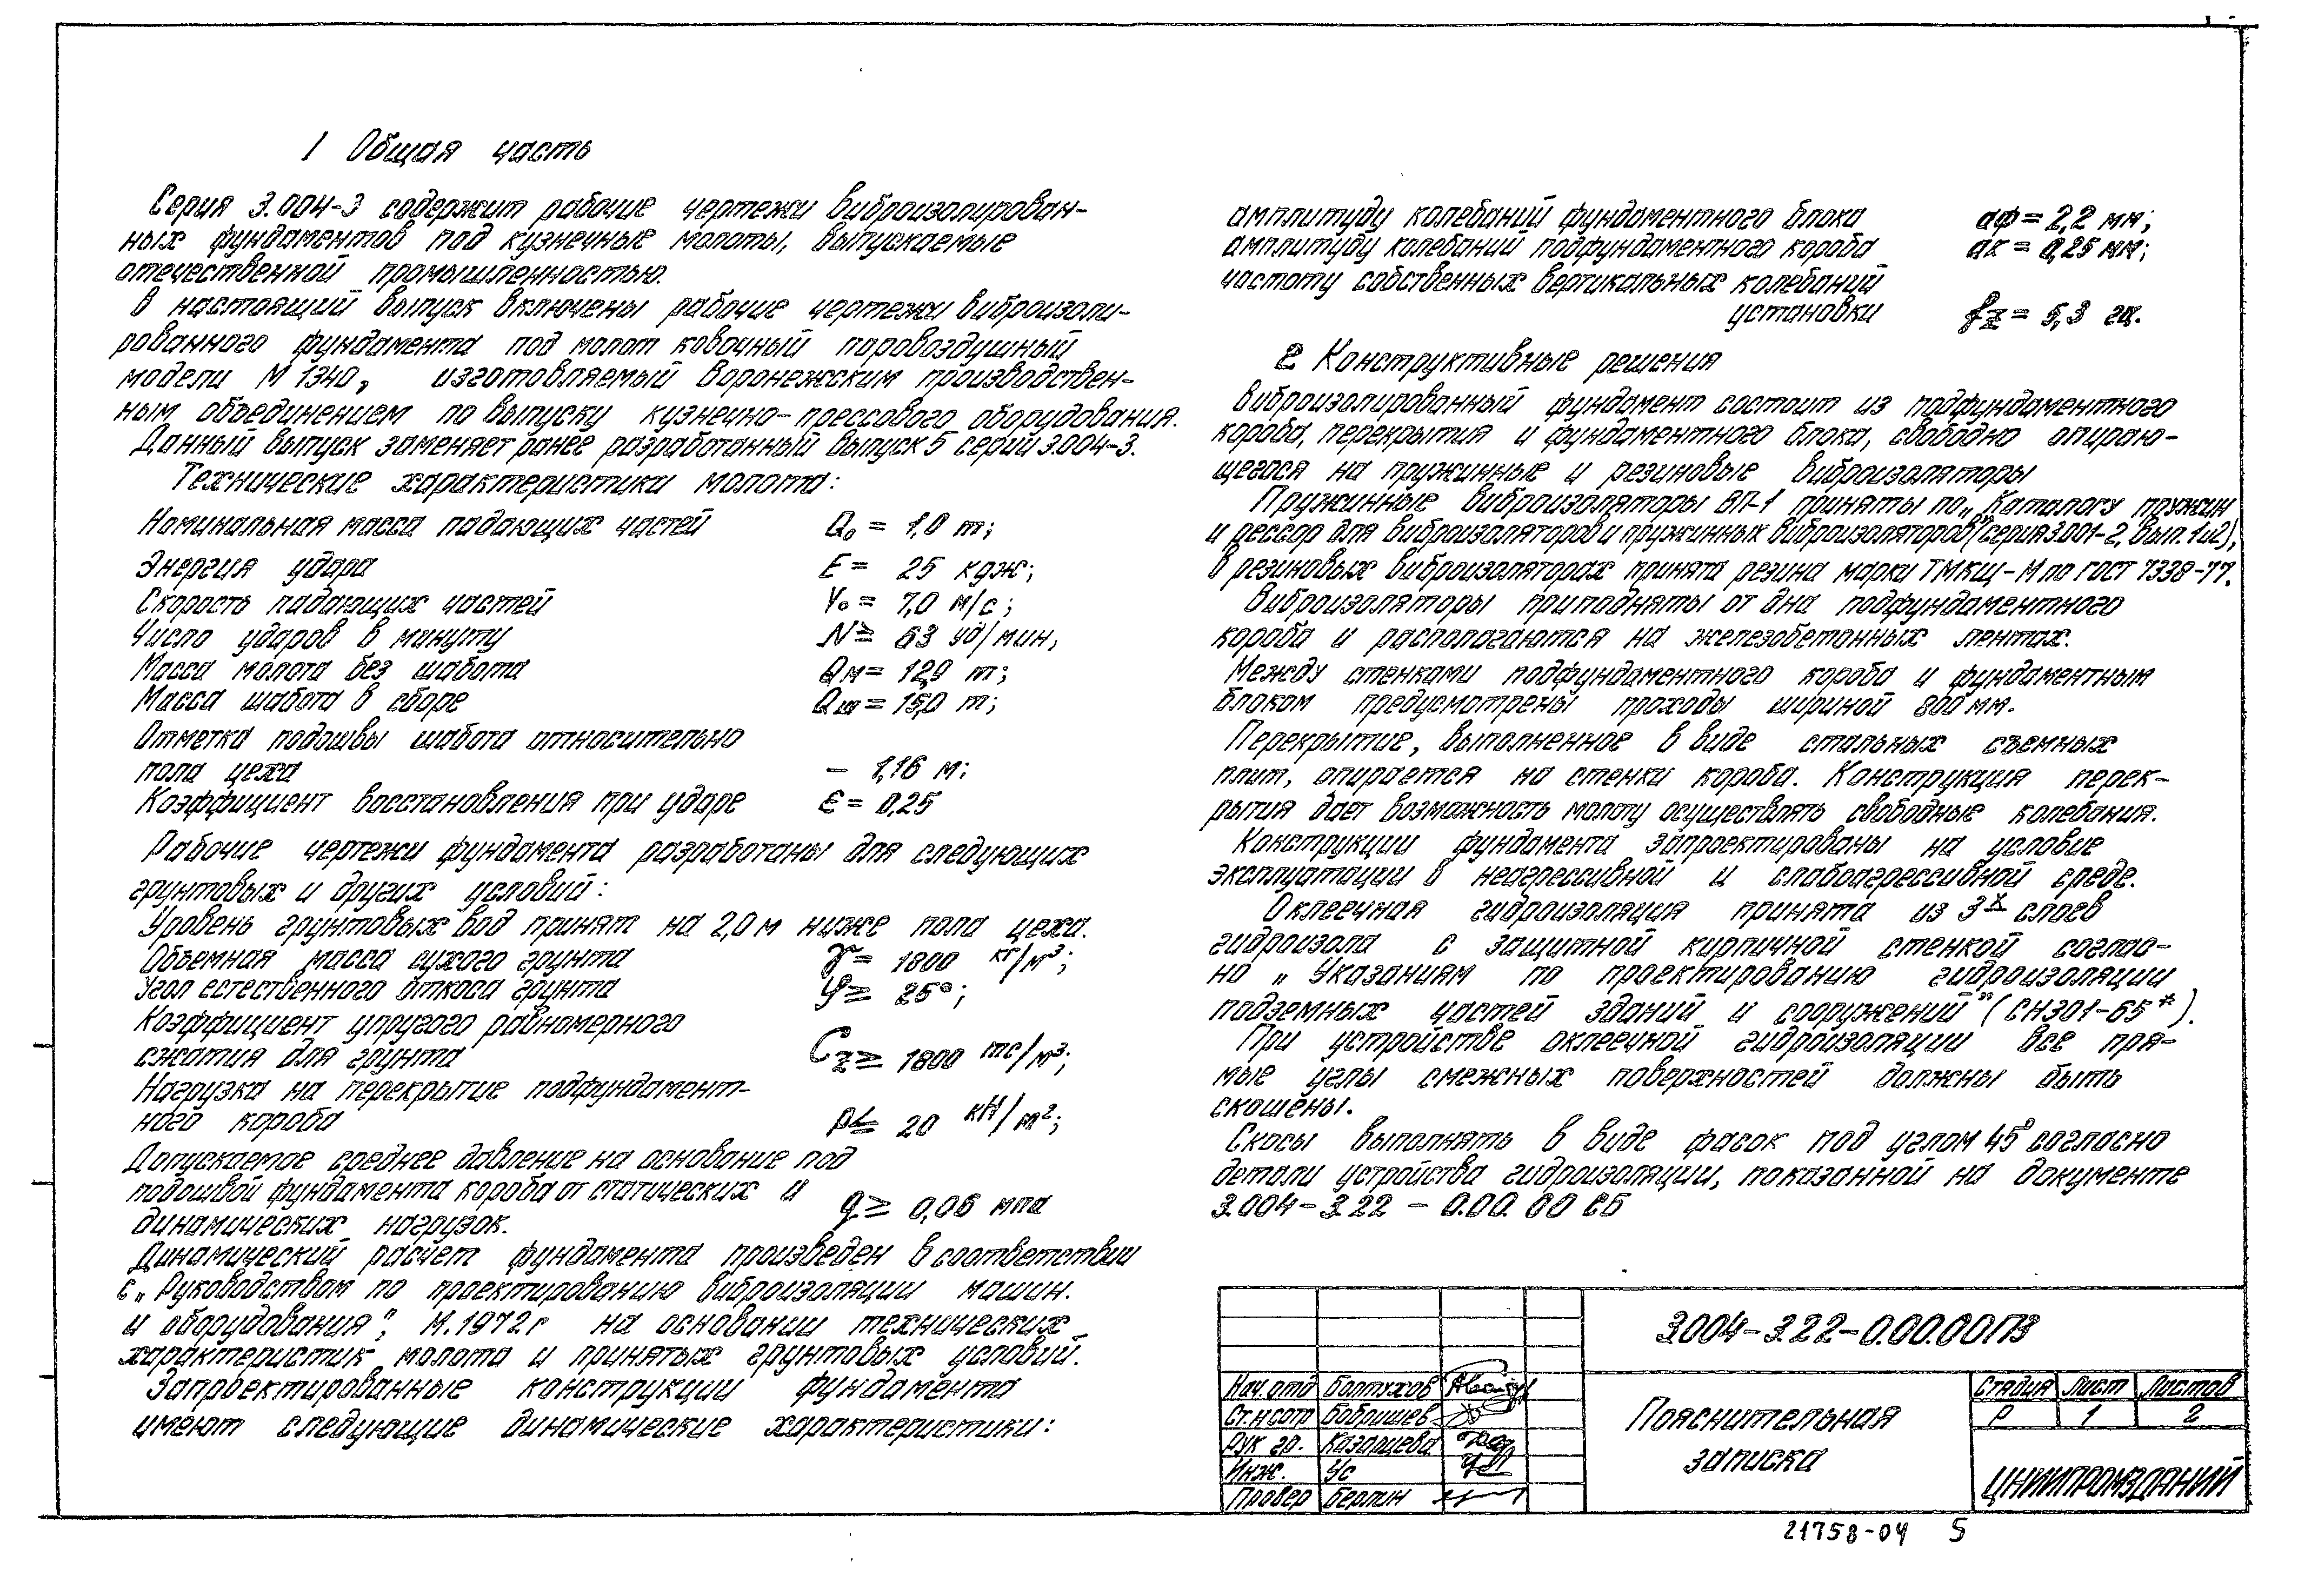 1 Общая часть
Серия 3.004-3 содержит рабочие чертежи виброизолирован-
ных фундаментов под кузнечные молоты, выпускаемые
отечественной промышленностью.
В настоящий выпуск включены рабочие чертежи виброизоли-
рованного фундамента под молот ковочный паровоздушный
модели М 1340, изготовляемый Воронежским производствен-
ным объединением по выпуску кузнечно-прессового оборудования.
Данный выпуск заменяет ранее разработанный выпуск 5 серий 3.004-3.
Технические характеристики молота:
Номинальная масса падающих частей Qо = 1,0 т;
Энергия удара E = 25 кдж;
Скорость падающих частей Vо = 7,0 м/с;
Число ударов в минуту N ≥ 63 уд/мин,
Масса молота без шабота Qм = 12,9 т;
Масса шабота в сборе Qш = 15,0 т;
Отметка подошвы шабота относительно
пола цеха - 1,16 м;
Коэффициент восстановления при ударе ε = 0,25
Рабочие чертежи фундамента разработаны для следующих
грунтовых и других условий:
Уровень грунтовых вод принят на 2,0 м ниже пола цеха.
Объемная масса сухого грунта γ = 1800 кг/м³;
Угол естественного откоса грунта φ ≥ 25°;
Коэффициент упругого равномерного
сжатия для грунта Cz ≥ 1800 тс/м³;
Нагрузка на перекрытие подфундамент-
ного короба p ≤ 20 кН/м²;
Допускаемое среднее давление на основание под
подошвой фундамента короба от статических и
динамических нагрузок. q ≥ 0,06 мпа
Динамический расчет фундамента произведен в соответствии
с „Руководством по проектированию виброизоляции машин.
и оборудования", М.1972г на основании технических
характеристик молота и принятых грунтовых условий.
Запроектированные конструкции фундамента
имеют следующие динамические характеристики:
амплитуду колебаний фундаментного блока аф = 2,2 мм;
амплитуду колебаний подфундаментного короба ак = 0,25 мм;
частоту собственных вертикальных колебаний
установки fz = 5,3 гц.
2 Конструктивные решения
Виброизолированный фундамент состоит из подфундаментного
короба, перекрытия и фундаментного блока, свободно опираю-
щегося на пружинные и резиновые виброизоляторы
Пружинные виброизоляторы ВП-1 приняты по „Каталогу пружин
и рессор для виброизоляторов и пружинных виброизоляторов" (серия 3.001-2, Вып. 1и2),
В резиновых виброизоляторах принята резина марки ТМКЩ-М по ГОСТ 7338-77.
Виброизоляторы приподняты от дна подфундаментного
короба и располагаются на железобетонных лентах.
Между стенками подфундаментного короба и фундаментным
блоком предусмотрены проходы шириной 800 мм.
Перекрытие, выполненное в виде стальных съемных
плит, опирается на стенки короба. Конструкция перек-
рытия дает возможность молоту осуществлять свободные колебания.
Конструкции фундамента запроектированы на условие
эксплуатации в неагрессивной и слабоагрессивной среде.
Оклеечная гидроизоляция принята из 3х слоев
гидроизола с защитной кирпичной стенкой соглас-
но „Указаниям по проектированию гидроизоляции
подземных частей зданий и сооружений" (СН301-65*).
При устройстве оклеечной гидроизоляции все пря-
мые углы смежных поверхностей должны быть
скошены.
Скосы выполнять в виде фасок под углом 45° согласно
детали устройства гидроизоляции, показанной на документе
3.004-3.22 - 0.00.00 СБ
3.004-3.22-0.00.00ПЗ
Нач.отд
Ст.н.сотр Бобрышев
Рук гр. Казарцева
Инж. Ус
Провер Берлин
Пояснительная
записка
Стадия Лист Листов
Р 1 2
ЦНИИПРОМЗДАНИЙ
21758-04 5